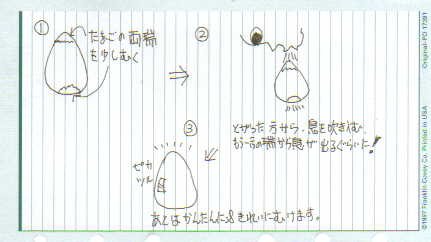 ①
たまごの両端
を少しむく
②
とがった方から、息を吹きこむ。
もう一方の端から息が出るぐらいに!
③
ピカ
ツル
あとはかんたんに&きれいにむけます。
Original-PD 17391
©1997 Franklin Covey Co. Printed in USA